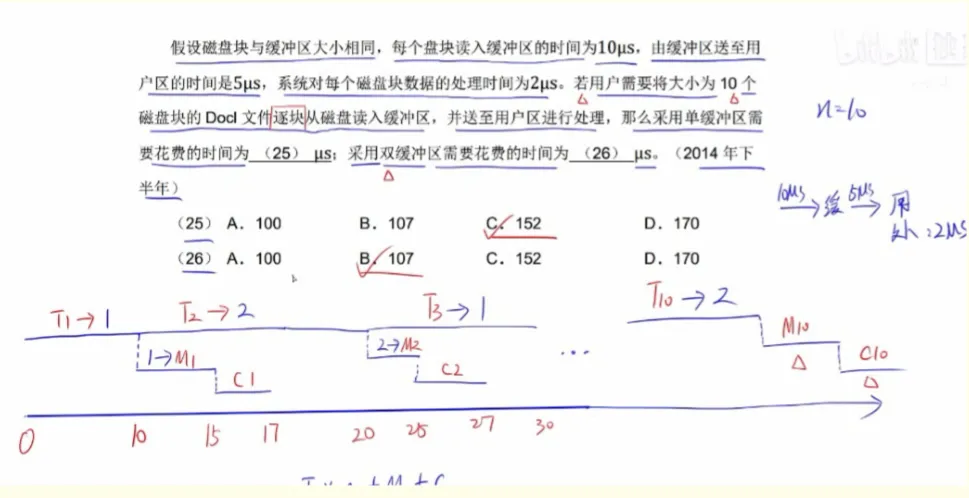 假设磁盘块与缓冲区大小相同，每个盘块读入缓冲区的时间为10μs，由缓冲区送至用
户区的时间是5μs，系统对每个磁盘块数据的处理时间为2μs。若用户需要将大小为 10 个
磁盘块的 Docl 文件逐块从磁盘读入缓冲区，并送至用户区进行处理，那么采用单缓冲区需
要花费的时间为 （25） μs；采用双缓冲区需要花费的时间为 （26） μs。（2014 年下
半年）
n=10
10μs → 缓 5μs → 用
处：2μs
（25）A．100 B．107 C．152 D．170
（26）A．100 B．107 C．152 D．170
T1→1 T2→2 T3→1 T10→2
1→M1 2→M2 ... M10
C1 C2 C10
0 10 15 17 20 25 27 30